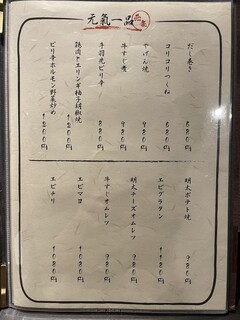 元氣一品
だし巻き 680円
コリコリつくね 680円
やげん焼 780円
牛すじ煮 780円
手羽先ピリ辛 880円
鶏肉とエリンギ柚子胡椒焼 1200円
ピリ辛ホルモン野菜炒め 1200円
明太ポテト焼 980円
エビグラタン 1080円
明太チーズオムレツ 980円
牛すじオムレツ 980円
エビマヨ 1080円
エビチリ 1080円